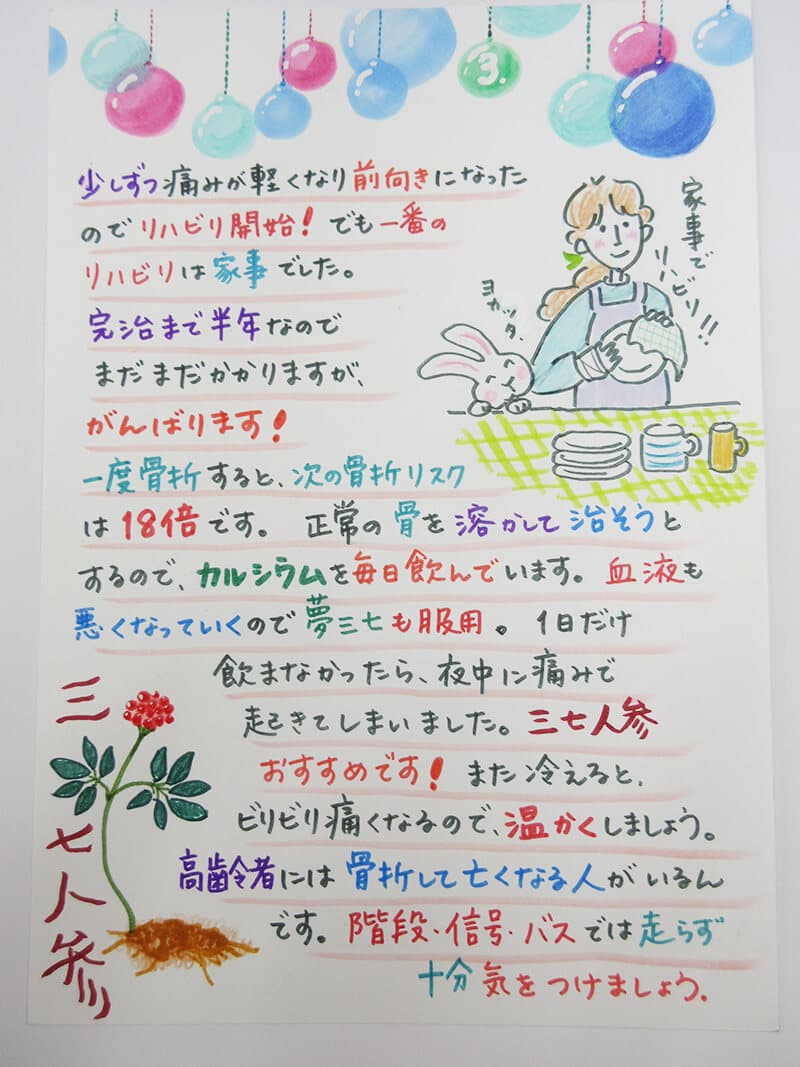 3.
少しずつ痛みが軽くなり前向きになった
のでリハビリ開始！でも一番の
リハビリは家事でした。
完治まで半年なので
まだまだかかりますが、
がんばります！
家事で
リハビリ!!
ヨカッタ、
一度骨折すると、次の骨折リスク
は18倍です。正常の骨を溶かして治そうと
するので、カルシウムを毎日飲んでいます。血液も
悪くなっていくので夢三七も服用。1日だけ
飲まなかったら、夜中に痛みで
起きてしまいました。三七人参
おすすめです！また冷えると、
ビリビリ痛くなるので、温かくしましょう。
高齢者には骨折して亡くなる人がいるん
です。階段・信号・バスでは走らず
十分気をつけましょう.
三七人参